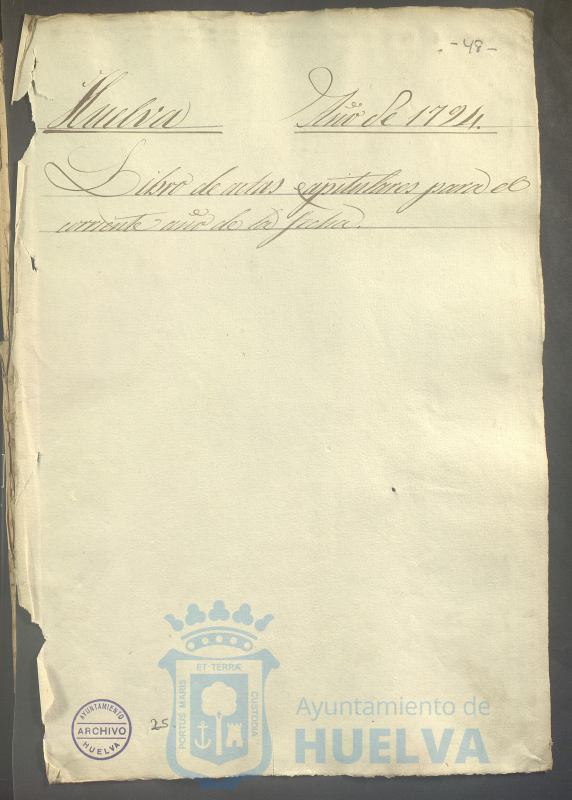 - 48 -
Huelva Año de 1794.
Libro de actas capitulares para el
corriente año de la fecha.
AYUNTAMIENTO
ARCHIVO
HUELVA
25
PORTUS MARIS
ET TERRÆ
CUSTODIA
Ayuntamiento de
HUELVA